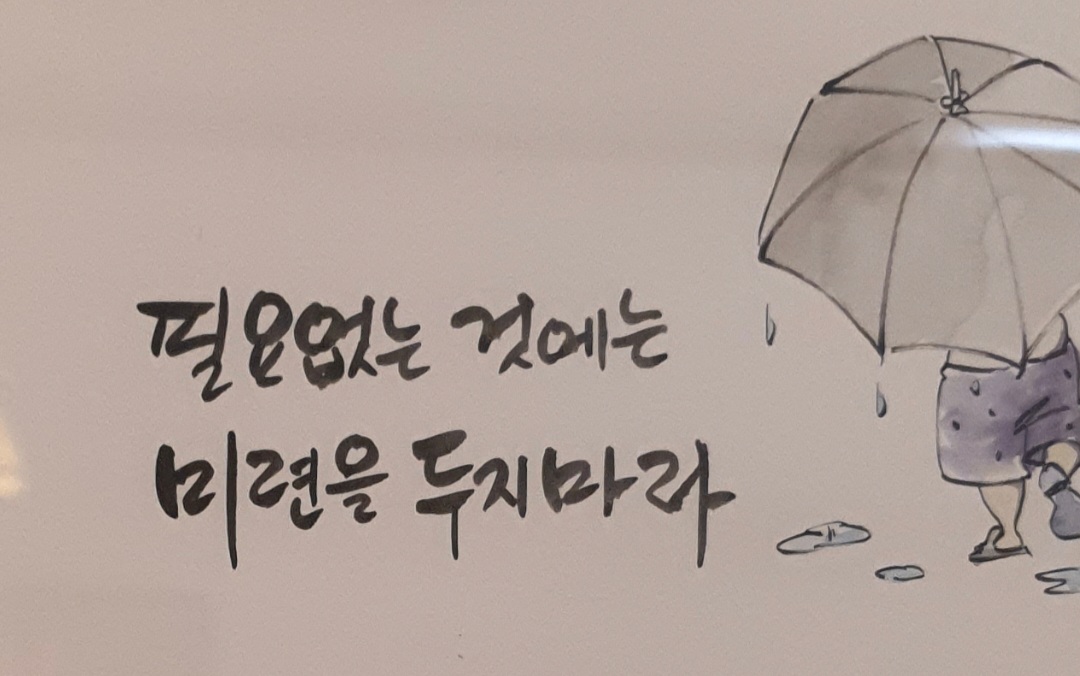 필요없는 것에는
미련을 두지마라